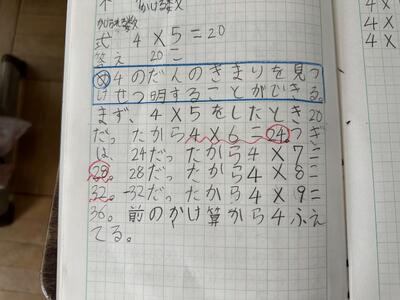 かける数
かけられる数
式 4×5=20
答え 20こ
め 4のだんのきまりを見つ
けせつ明することができる。
まず、4×5をしたとき20
だったから4×6=24。つぎ
は、24だったから4×7=
28。28だったから4×8=
32。32だったから4×9=
36。前のかけ算から4ふえ
てる。
4×
4×
4×